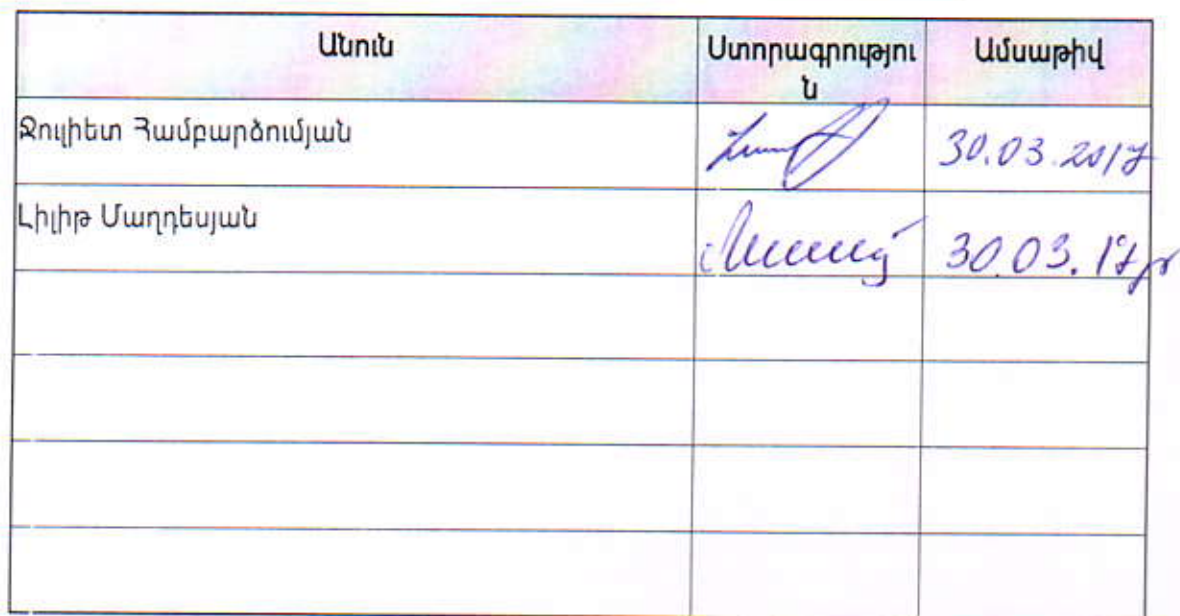 Անուն Ստորագրությու Ամսաթիվ
ն
Ջուլիետ Համբարձումյան 30.03.2017
Լիլիթ Մաղդեսյան 30.03.17թ